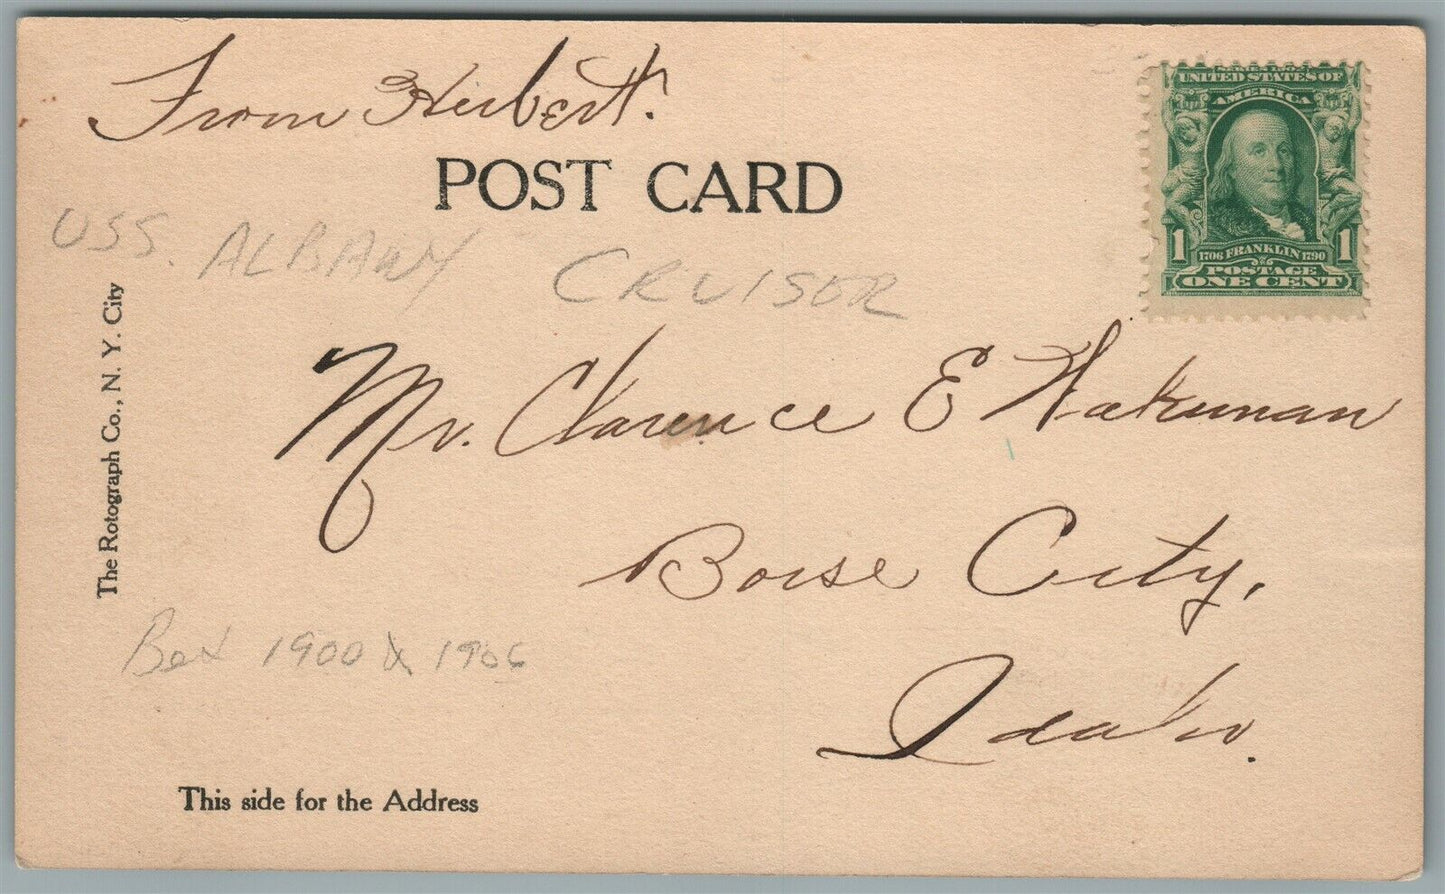 From Herbert.
POST CARD
SERIES 1902
UNITED STATES OF
AMERICA
1 1
1706 FRANKLIN 1790
POSTAGE
ONE CENT
USS. ALBANY CRUISER
The Rotograph Co., N. Y. City
Mr. Clarence E Wakeman
Boise City,
Idaho.
Bet 1900 & 1906
This side for the Address